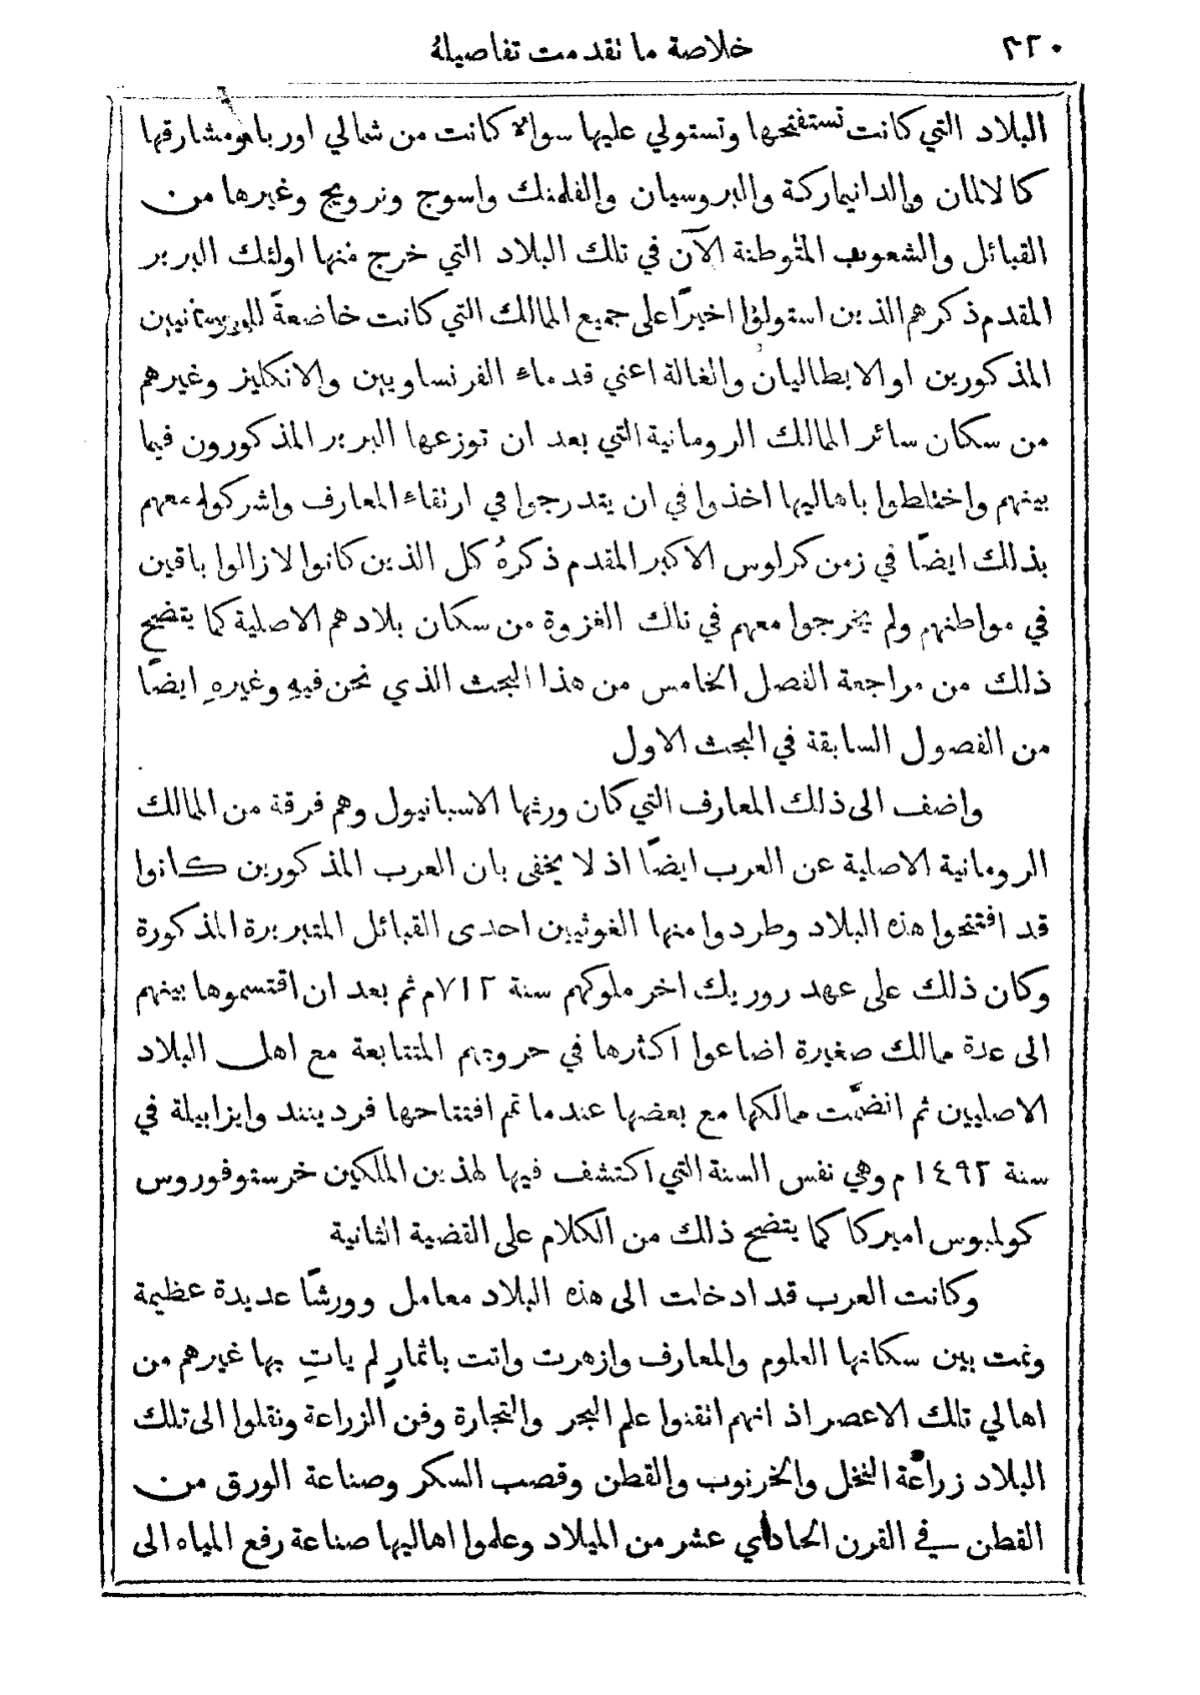 ٣٢٠
خلاصة ما نقدمت تفاصيلهُ
البلاد التي كانت تستفتحها وتستولي عليها سوالا كانت من شمالي اوربا ومشارقها
كالالمان والدانيماركة والبروسيان والفلمنك واسوج ونرويج وغيرها من
القبائل والشعوب المتوطنة الآن في تلك البلاد التي خرج منها اولئك البربر
المقدم ذكرهم الذين استولوا اخيرًا على جميع الممالك التي كانت خاضعةً
المذكورين او الايطاليان والغالة اعني قدماء الفرنساويين والانكليز وغيرهم
من سكان سائر الممالك الرومانية التي بعد ان توزعها البربر المذكورون فيما
بينهم واختلطوا باهاليها اخذوا في ان يتدرجوا في ارتقاء المعارف واشركوا معهم
بذلك ايضًا في زمن كرلوس الاكبر المقدم ذكرهُ كل الذين كانوا لازالوا باقين
في مواطنهم ولم يخرجوا معهم في تلك الغزوة من سكان بلادهم الاصلية كما يتضح
ذلك من مراجعة الفصل الخامس من هذا البحث الذي نحن فيهِ وغيرهِ ايضًا
من الفصول السابقة في البحث الاول
واضف الى ذلك المعارف التي كان ورثها الاسبانيول وهم فرقة من الممالك
الرومانية الاصلية عن العرب ايضًا اذ لا يخفى بان العرب المذكورين كانوا
قد افتتحوا هذه البلاد وطردوا منها الغوثيين احدى القبائل المتبربرة المذكورة
وكان ذلك على عهد روريك اخر ملوكهم سنة ٧١٢م ثم بعد ان اقتسموها بينهم
الى عدة ممالك صغيرة اضاعوا اكثرها في حروبهم المتتابعة مع اهل البلاد
الاصليين ثم انضمَّت ممالكها مع بعضها عندما تم افتتاحها فردينند وايزابيلة في
سنة ١٤٩٢ م وهي نفس السنة التي اكتشف فيها لهذين الملكين خرستوفوروس
كولمبوس اميركا كما يتضح ذلك من الكلام على القضية الثانية
وكانت العرب قد ادخلت الى هذه البلاد معامل وورشًا عديدة عظيمة
ونمت بين سكانها العلوم والمعارف وازهرت واتت باثمارٍ لم ياتِ بها غيرهم من
اهالي تلك الاعصر اذ انهم اتقنوا علم البحر والتجارة وفن الزراعة ونقلوا الى تلك
البلاد زراعة النخل والخرنوب والقطن وقصب السكر وصناعة الورق من
القطن في القرن الحادي عشر من الميلاد وعلموا اهاليها صناعة رفع المياه الى